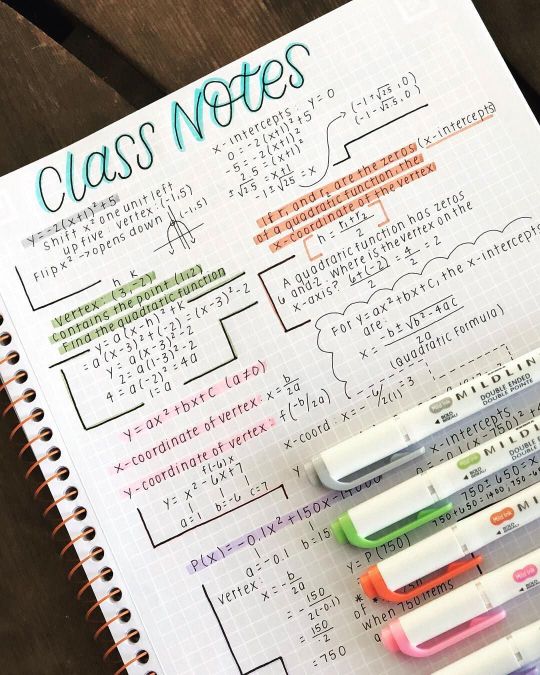 Class Notes
y=-2(x+1)²+5
Shift x² one unit left
up five. vertex: (-1,5)
Flip x² → opens down
(-1,5)
x-intercepts: y=0
0=-2(x+1)²+5
-5=-2(x+1)²
2.5=(x+1)²
±√2.5=x+1
-1±√2.5=x
(-1+√2.5, 0)
(-1-√2.5, 0)
If r₁ and r₂ are the zeros (x-intercepts)
of a quadratic function, the
x-coordinate of the vertex
h = r₁+r₂/2
A quadratic function has zeros
6 and -2. Where is the vertex on the
x-axis? 6+(-2)/2 = 4/2 = 2
h k
Vertex: (3,-2)
contains the point (1,2)
Find the quadratic function
y=a(x-h)²+k
=a(x-3)²+(-2)=(x-3)²-2
y=a(x-3)²-2
2=a(1-3)²-2
4=a(-2)²=4a
1=a
For y=ax²+bx+C, the x-intercepts
are:
x = -b±√b²-4ac/2a
(Quadratic Formula)
y=ax²+bx+C (a≠0)
x-coordinate of vertex: x=-b/2a
y-coordinate of vertex: f(-b/2a)
f(-6)x
y=x²-6x+7
a=1 b=-6 c=7
x-coord: x=-6/2(1)=3
x-intercepts
0=-0.1(x-750)²+
750±650=x
750+650=1400, 750-65
P(x)=-0.1x²+150x-
a=-0.1 b=15
vertex:
x=-b/2a
=-150/2(-0.1)
=150/.2
=750
y=P(750)
of
when 750 items
Mild Ink
MILDLIN
DOUBLE ENDED
DOUBLE POINTE
Mild Ink
MILDLIN
DOUBLE ENDED
DOUBLE POINTE
Mild Ink
MILD
Mild Ink